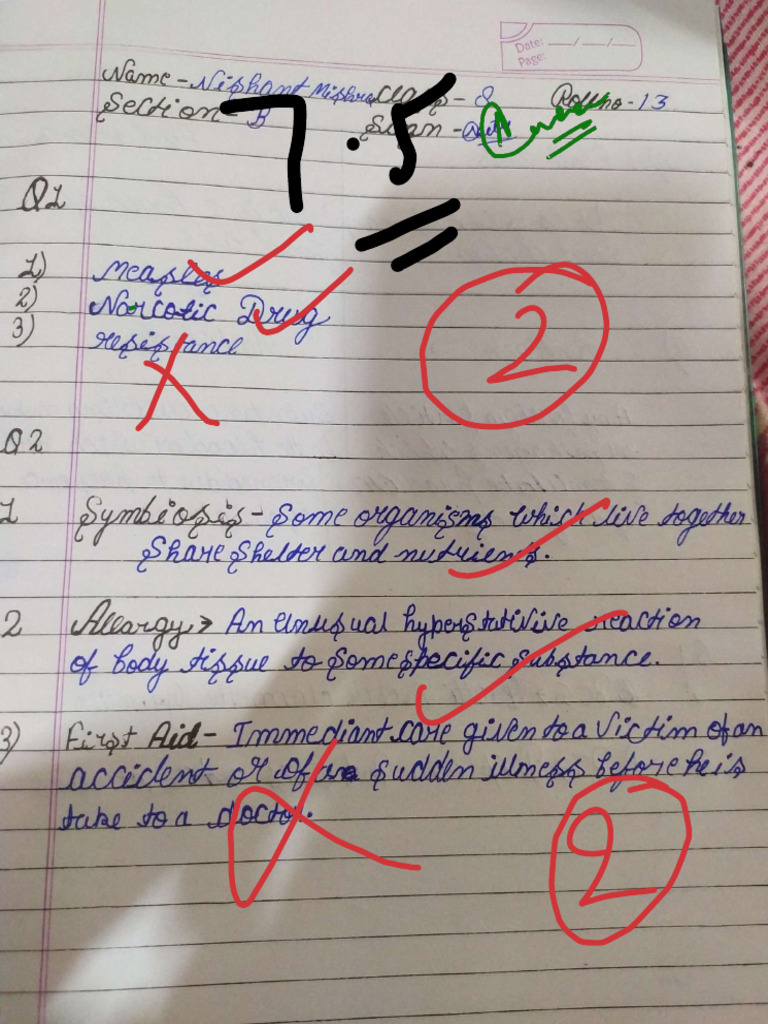 Date: __/__/__
Page:
Name - Nishant Mishra Class - 8 Roll no - 13
Section - B
7.5
Q1
1) Measles
2) Narcotic Drug
3) resistance
2
Q2
1 Symbiosis - Some organisms which live together
Share Shelter and nutrients.
2 Allargy → An unusual hyperstutivive reaction
of body tissue to some specific substance.
3) First Aid - Immediant care given to a victim of an
accident or of a sudden illness before he is
take to a doctor.
2